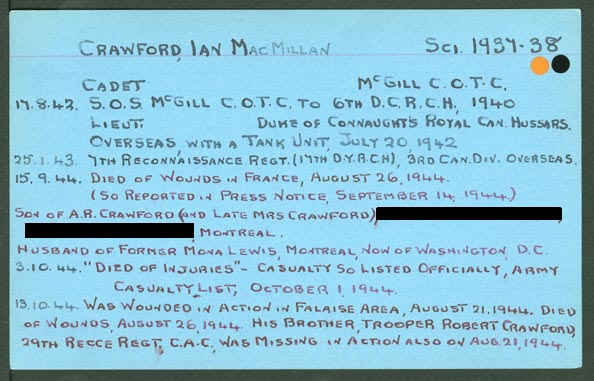 CRAWFORD, IAN MACMILLAN SCI. 1937-38
CADET MCGILL C.O.T.C.
17.8.42. S.O.S. MCGILL C.O.T.C. TO 6TH D.C.R.C.H., 1940
LIEUT. DUKE OF CONNAUGHT'S ROYAL CAN. HUSSARS.
OVERSEAS, WITH A TANK UNIT, JULY 20, 1942
25.1.43. 7TH RECONNAISSANCE REGT. (17TH D.Y.R.C.H), 3RD CAN. DIV. OVERSEAS.
15.9.44. DIED OF WOUNDS IN FRANCE, AUGUST 26, 1944.
(SO REPORTED IN PRESS NOTICE, SEPTEMBER 14, 1944.)
SON OF A.R. CRAWFORD (AND LATE MRS CRAWFORD),
, MONTREAL.
HUSBAND OF FORMER MONA LEWIS, MONTREAL, NOW OF WASHINGTON, D.C.
3.10.44. "DIED OF INJURIES" - CASUALTY SO LISTED OFFICIALLY, ARMY
CASUALTY LIST, OCTOBER 1, 1944.
13.10.44. WAS WOUNDED IN ACTION IN FALAISE AREA, AUGUST 21, 1944. DIED
OF WOUNDS, AUGUST 26, 1944. HIS BROTHER, TROOPER ROBERT CRAWFORD,
29TH RECCE REGT., C.A.C., WAS MISSING IN ACTION ALSO ON AUG. 21, 1944.